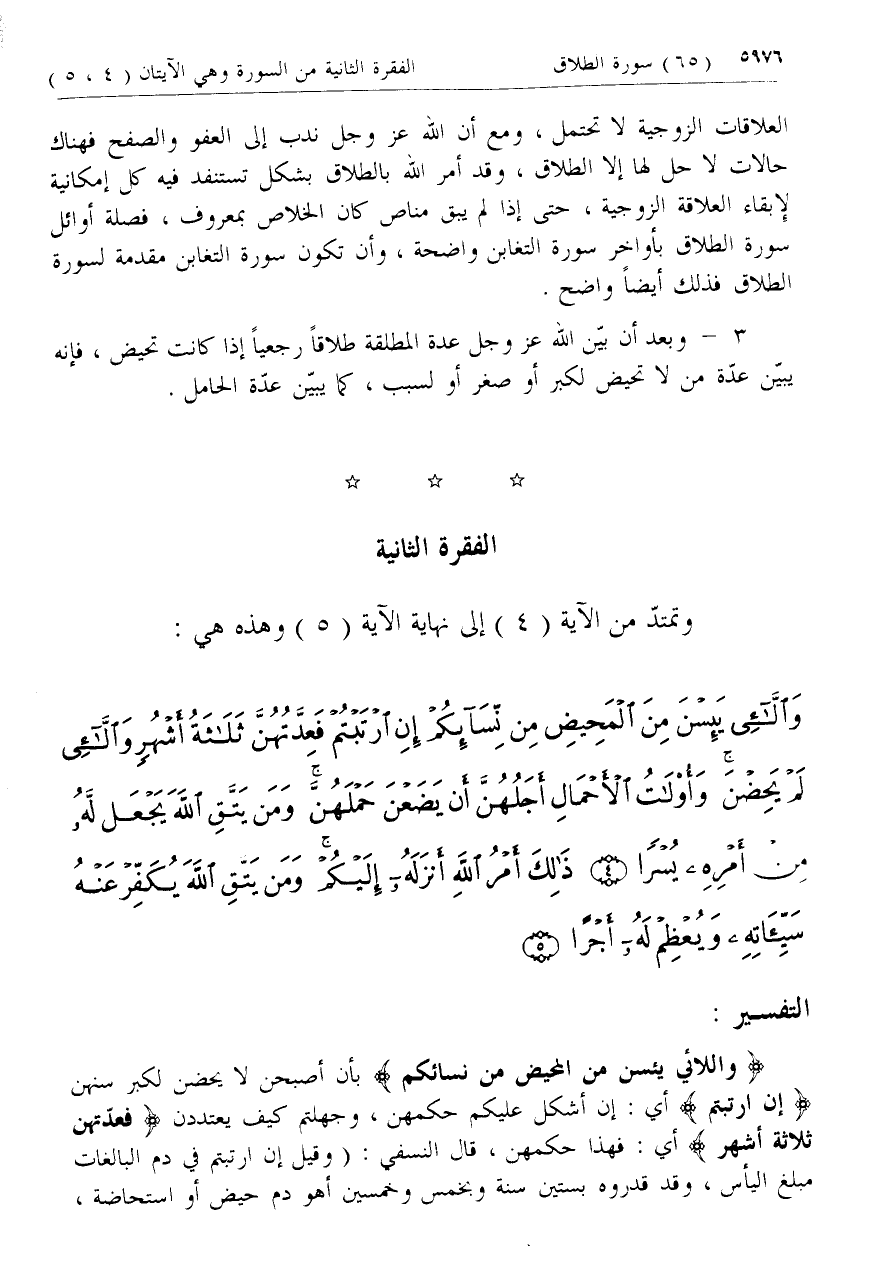 ٥٩٧٦ (٦٥) سورة الطلاق الفقرة الثانية من السورة وهي الآيتان (٤ ، ٥)
العلاقات الزوجية لا تحتمل ، ومع أن الله عز وجل ندب إلى العفو والصفح فهناك
حالات لا حل لها إلا الطلاق ، وقد أمر الله بالطلاق بشكل تستنفد فيه كل إمكانية
لإبقاء العلاقة الزوجية ، حتى إذا لم يبق مناص كان الخلاص بمعروف ، فصلة أوائل
سورة الطلاق بأواخر سورة التغابن واضحة ، وأن تكون سورة التغابن مقدمة لسورة
الطلاق فذلك أيضاً واضح .
٣ - وبعد أن بيّن الله عز وجل عدة المطلقة طلاقاً رجعياً إذا كانت تحيض ، فإنه
يبيّن عدّة من لا تحيض لكبر أو صغر أو لسبب ، كما يبيّن عدّة الحامل .
☆ ☆ ☆
الفقرة الثانية
وتمتدّ من الآية (٤) إلى نهاية الآية (٥) وهذه هي :
وَٱلَّـٰٓـِٔى يَئِسْنَ مِنَ ٱلْمَحِيضِ مِن نِّسَآئِكُمْ إِنِ ٱرْتَبْتُمْ فَعِدَّتُهُنَّ ثَلَـٰثَةُ أَشْهُرٍ وَٱلَّـٰٓـِٔى
لَمْ يَحِضْنَ ۚ وَأُوْلَـٰتُ ٱلْأَحْمَالِ أَجَلُهُنَّ أَن يَضَعْنَ حَمْلَهُنَّ ۚ وَمَن يَتَّقِ ٱللَّهَ يَجْعَل لَّهُۥ
مِنْ أَمْرِهِۦ يُسْرًا ﴿٤﴾ ذَٰلِكَ أَمْرُ ٱللَّهِ أَنزَلَهُۥٓ إِلَيْكُمْ ۚ وَمَن يَتَّقِ ٱللَّهَ يُكَفِّرْ عَنْهُ
سَيِّـَٔاتِهِۦ وَيُعْظِمْ لَهُۥٓ أَجْرًا ﴿٥﴾
التفسير :
﴿ واللائي يئسن من المحيض من نسائكم ﴾ بأن أصبحن لا يحضن لكبر سنهن
﴿ إن ارتبتم ﴾ أي : إن أشكل عليكم حكمهن ، وجهلتم كيف يعتددن ﴿ فعدّتهن
ثلاثة أشهر ﴾ أي : فهذا حكمهن ، قال النسفي : ( وقيل إن ارتبتم في دم البالغات
مبلغ اليأس ، وقد قدروه بستين سنة وبخمس وخمسين أهو دم حيض أو استحاضة ،